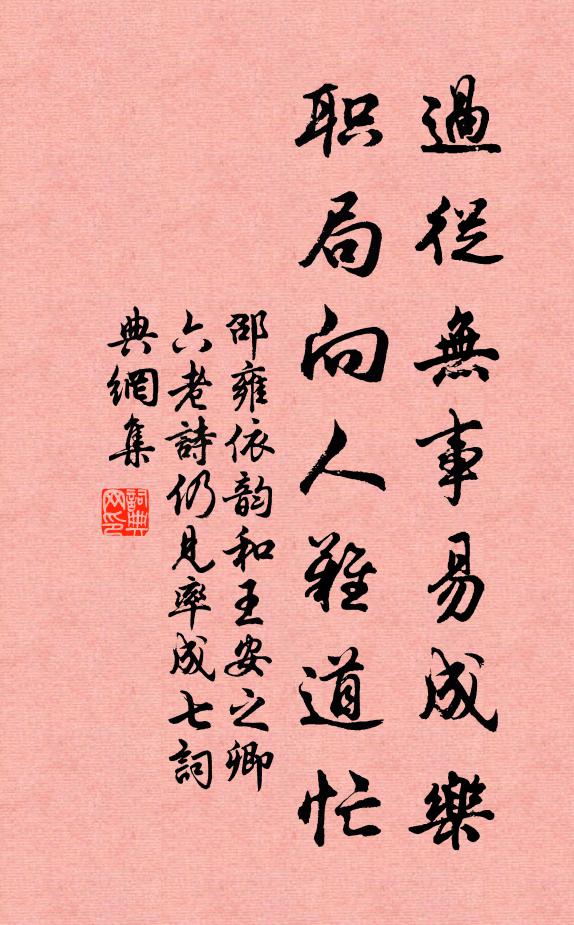 過從無事易成樂
职局向人難道忙
邵雍依韵和王安之卿
六老詩仍見率成七詞
典網集
詞典网印